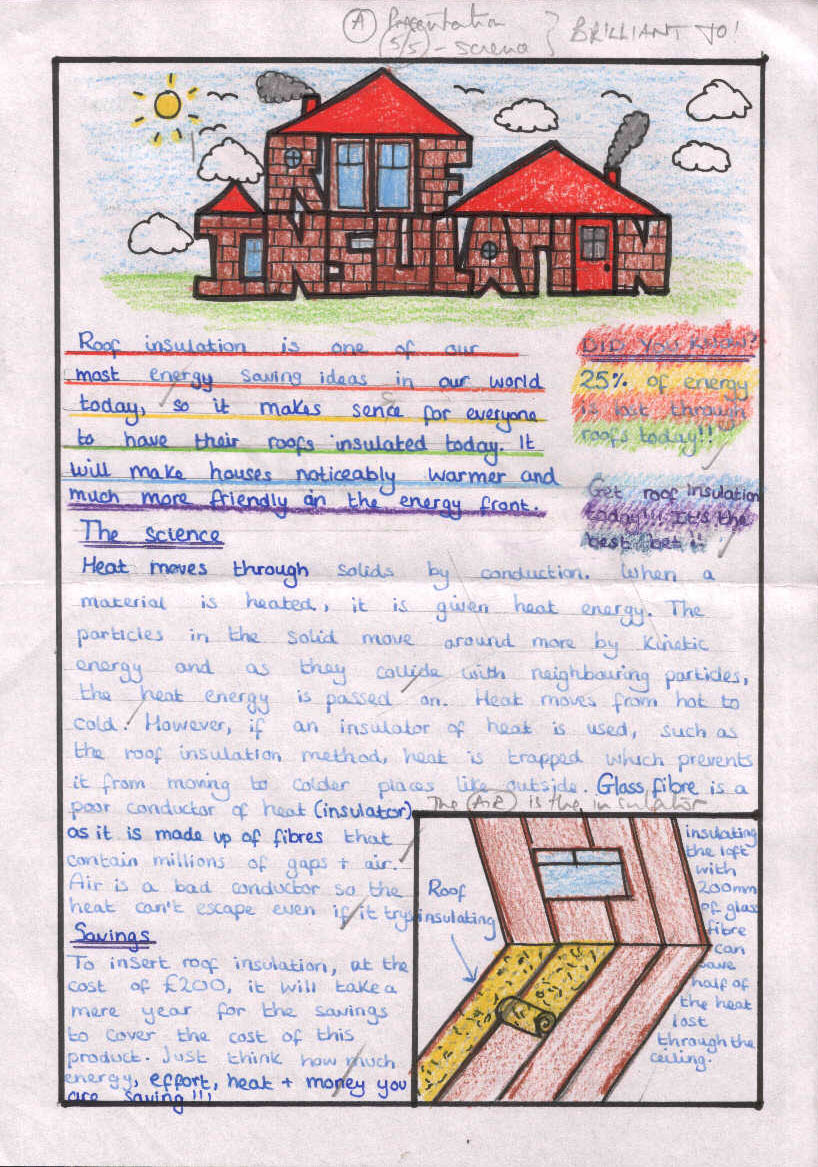 (A) Presentation
(5/5) - science } BRILLIANT JO!
ROOF
INSULATION
Roof insulation is one of our
most energy saving ideas in our world
today, so it makes sence for everyone
s
to have their roofs insulated today. It
will make houses noticeably warmer and
much more friendly on the energy front.
DID YOU KNOW?
25% of energy
is lost through
roofs today!!
Get roof insulation
today!!! It's the
best bet!!
The science
Heat moves through solids by conduction. When a
material is heated, it is given heat energy. The
particles in the solid move around more by kinetic
energy and as they collide with neighbouring particles,
the heat energy is passed on. Heat moves from hot to
cold. However, if an insulator of heat is used, such as
the roof insulation method, heat is trapped which prevents
it from moving to colder places like outside. Glass fibre is a
poor conductor of heat (insulator)
as it is made up of fibres that
contain millions of gaps + air.
Air is a bad conductor so the
heat can't escape even if it trys
The (AIR) is the insulator
Savings
To insert roof insulation, at the
cost of £200, it will take a
mere year for the savings
to cover the cost of this
product. Just think how much
energy, effort, heat + money you
are saving!!!
Roof
insulating
insulating
the loft
with
200mm
of glass
fibre
can
save
half of
the heat
lost
through the
ceiling.